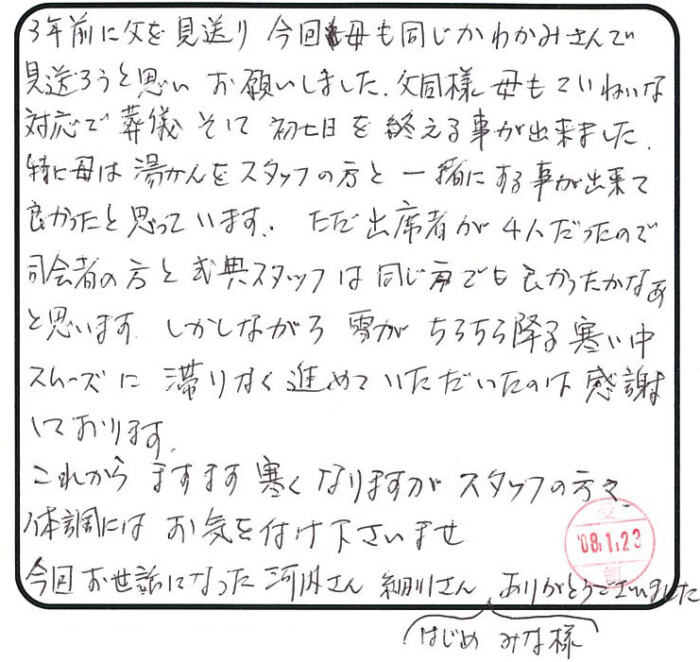 3年前に父を見送り 今回母も同じかわかみさんで
見送ろうと思い お願いしました。父同様 母もていねいな
対応で葬儀 そして 初七日を 終える事が出来ました。
特に母は 湯かんをスタッフの方と 一緒にする事が出来て
良かったと思っています。 ただ出席者が 4人だったので
司会者の方と 式典スタッフは 同じ方でも良かったかなあ
と思います。しかしながら 雪が ちらちら降る寒い中
スムーズに 滞りなく 進めて いただいたのは 感謝
しております。
これから ますます 寒く なりますが スタッフの方々、
体調には お気を付け下さいませ
今回 お世話になった 河内さん 細川さん、ありがとうございました
はじめ みな様
'08.1.23